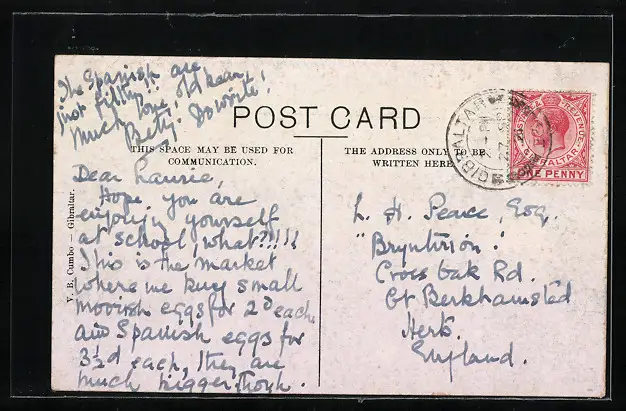 The Spanish are
just filthy!
Much love, old bean,
Betty. Do write!
POST CARD
THIS SPACE MAY BE USED FOR
COMMUNICATION.
THE ADDRESS ONLY TO BE
WRITTEN HERE
Dear Laurie,
Hope you are
enjoying yourself
at school, what?!!!!
This is the market
where we buy small
moorish eggs for 2d each
and Spanish eggs for
3½d each, they are
much bigger though.
V. B. Cumbo – Gibraltar.
L. H. Pearce, Esq.
"Bryntirion"
Cross Oak Rd.
Gt Berkhamsted
Herts.
England.
GIBRALTAR
POSTAGE & REVENUE
GIBRALTAR
ONE PENNY